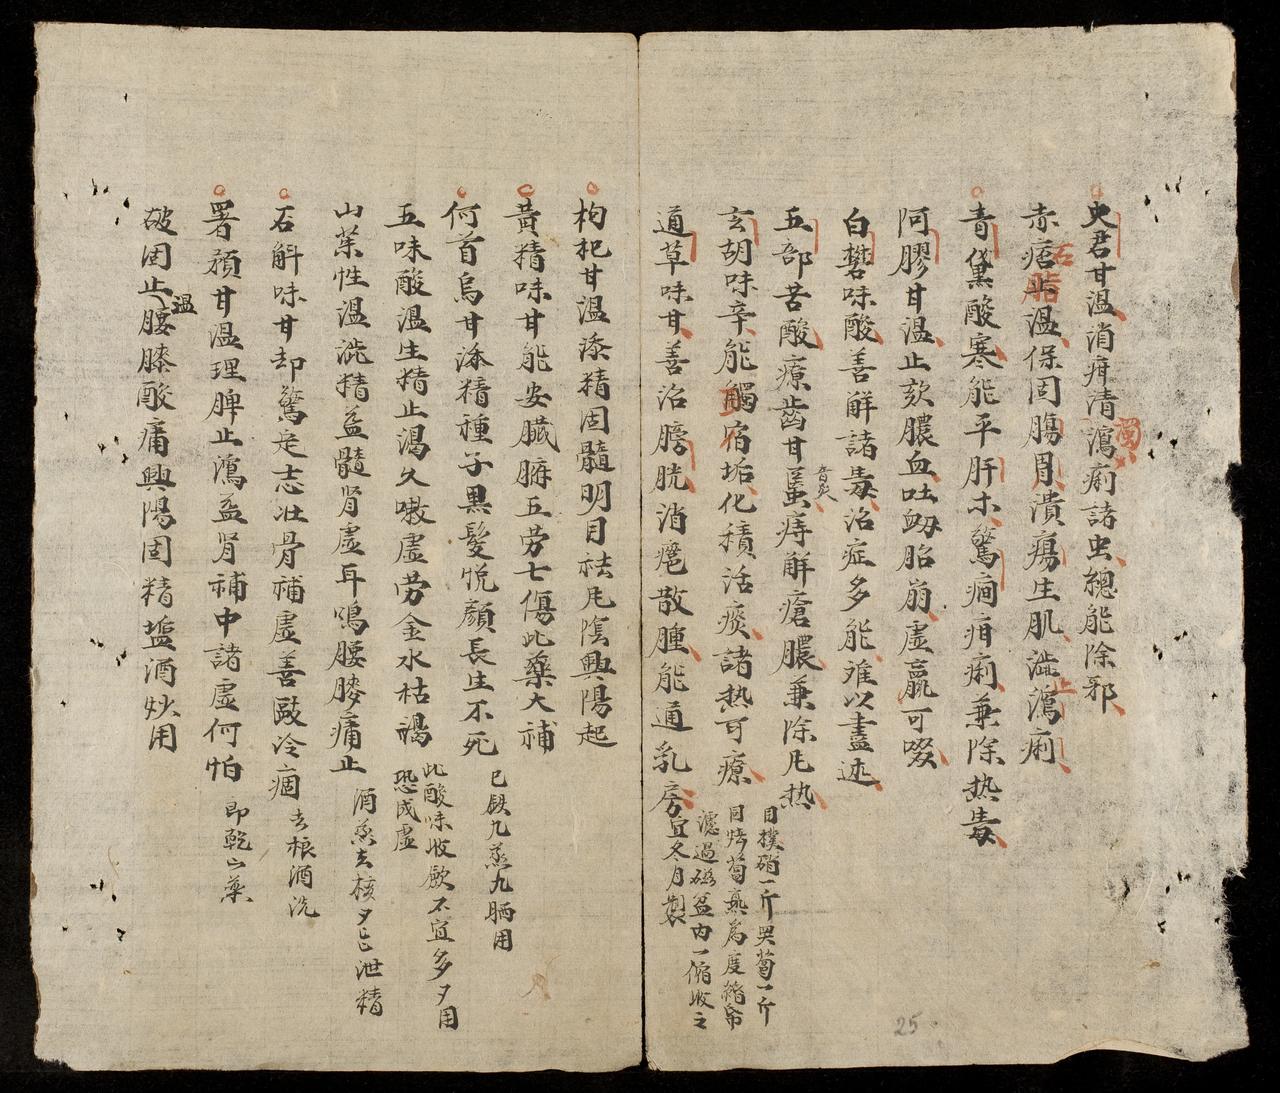 史君甘温消疳清濁瀉痢諸虫總能除邪
赤石脂温保固腸胃潰瘍生肌澁瀉止痢
青黛酸寒能平肝木驚癎疳痢兼除热毒
阿膠甘温止欬膿血吐衂胎崩虚羸可啜
白礬味酸善解諸毒治症多能难以盡述
五部苦酸療齒甘䘌痔解瘡膿兼除凡热
音炙
玄胡味辛能觸宿垢化積活痰諸热可療
目撲硝一斤
一斤
為度
濾過磁盆内一
收之
宜冬月製
通草味甘善治膀胱消癰散腫能通乳房
枸杞甘温添精固髓明目祛凡陰興陽起
黄精味甘能安臓腑五劳七傷此藥大補
何首烏甘添精種子黒髮悦顔長生不死
已鉄九蒸九晒用
五味酸温生精止渴久嗽虚劳金水枯竭
此酸味收歛不宜多夕用
恐成虚
山茱性温澁精益髓肾虚耳鳴腰膝痛止
酒蒸去核夕亡泄精
石斛味甘却驚定志壮骨補虚善敺冷痼
去根酒洗
署蕷甘温理脾止瀉益肾補中諸虚何怕
即乾山薬
破固温止腰膝酸痛興陽固精塩酒炒用
25